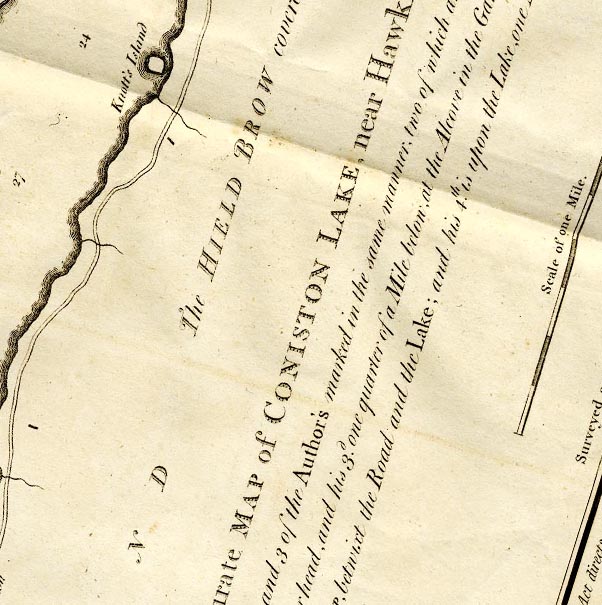 24
Knott's Island
27
1
1
The HIELD BROW
N D
MAP of CONISTON LAKE, near
and 3 of the Author's marked in the same manner, two of which
and his 3.d one quarter of a Mile below, at the Alcove in the
betwixt the Road and the Lake; and his 4th is upon the Lake, one
Scale of one Mile.
Surveyed
Act directs